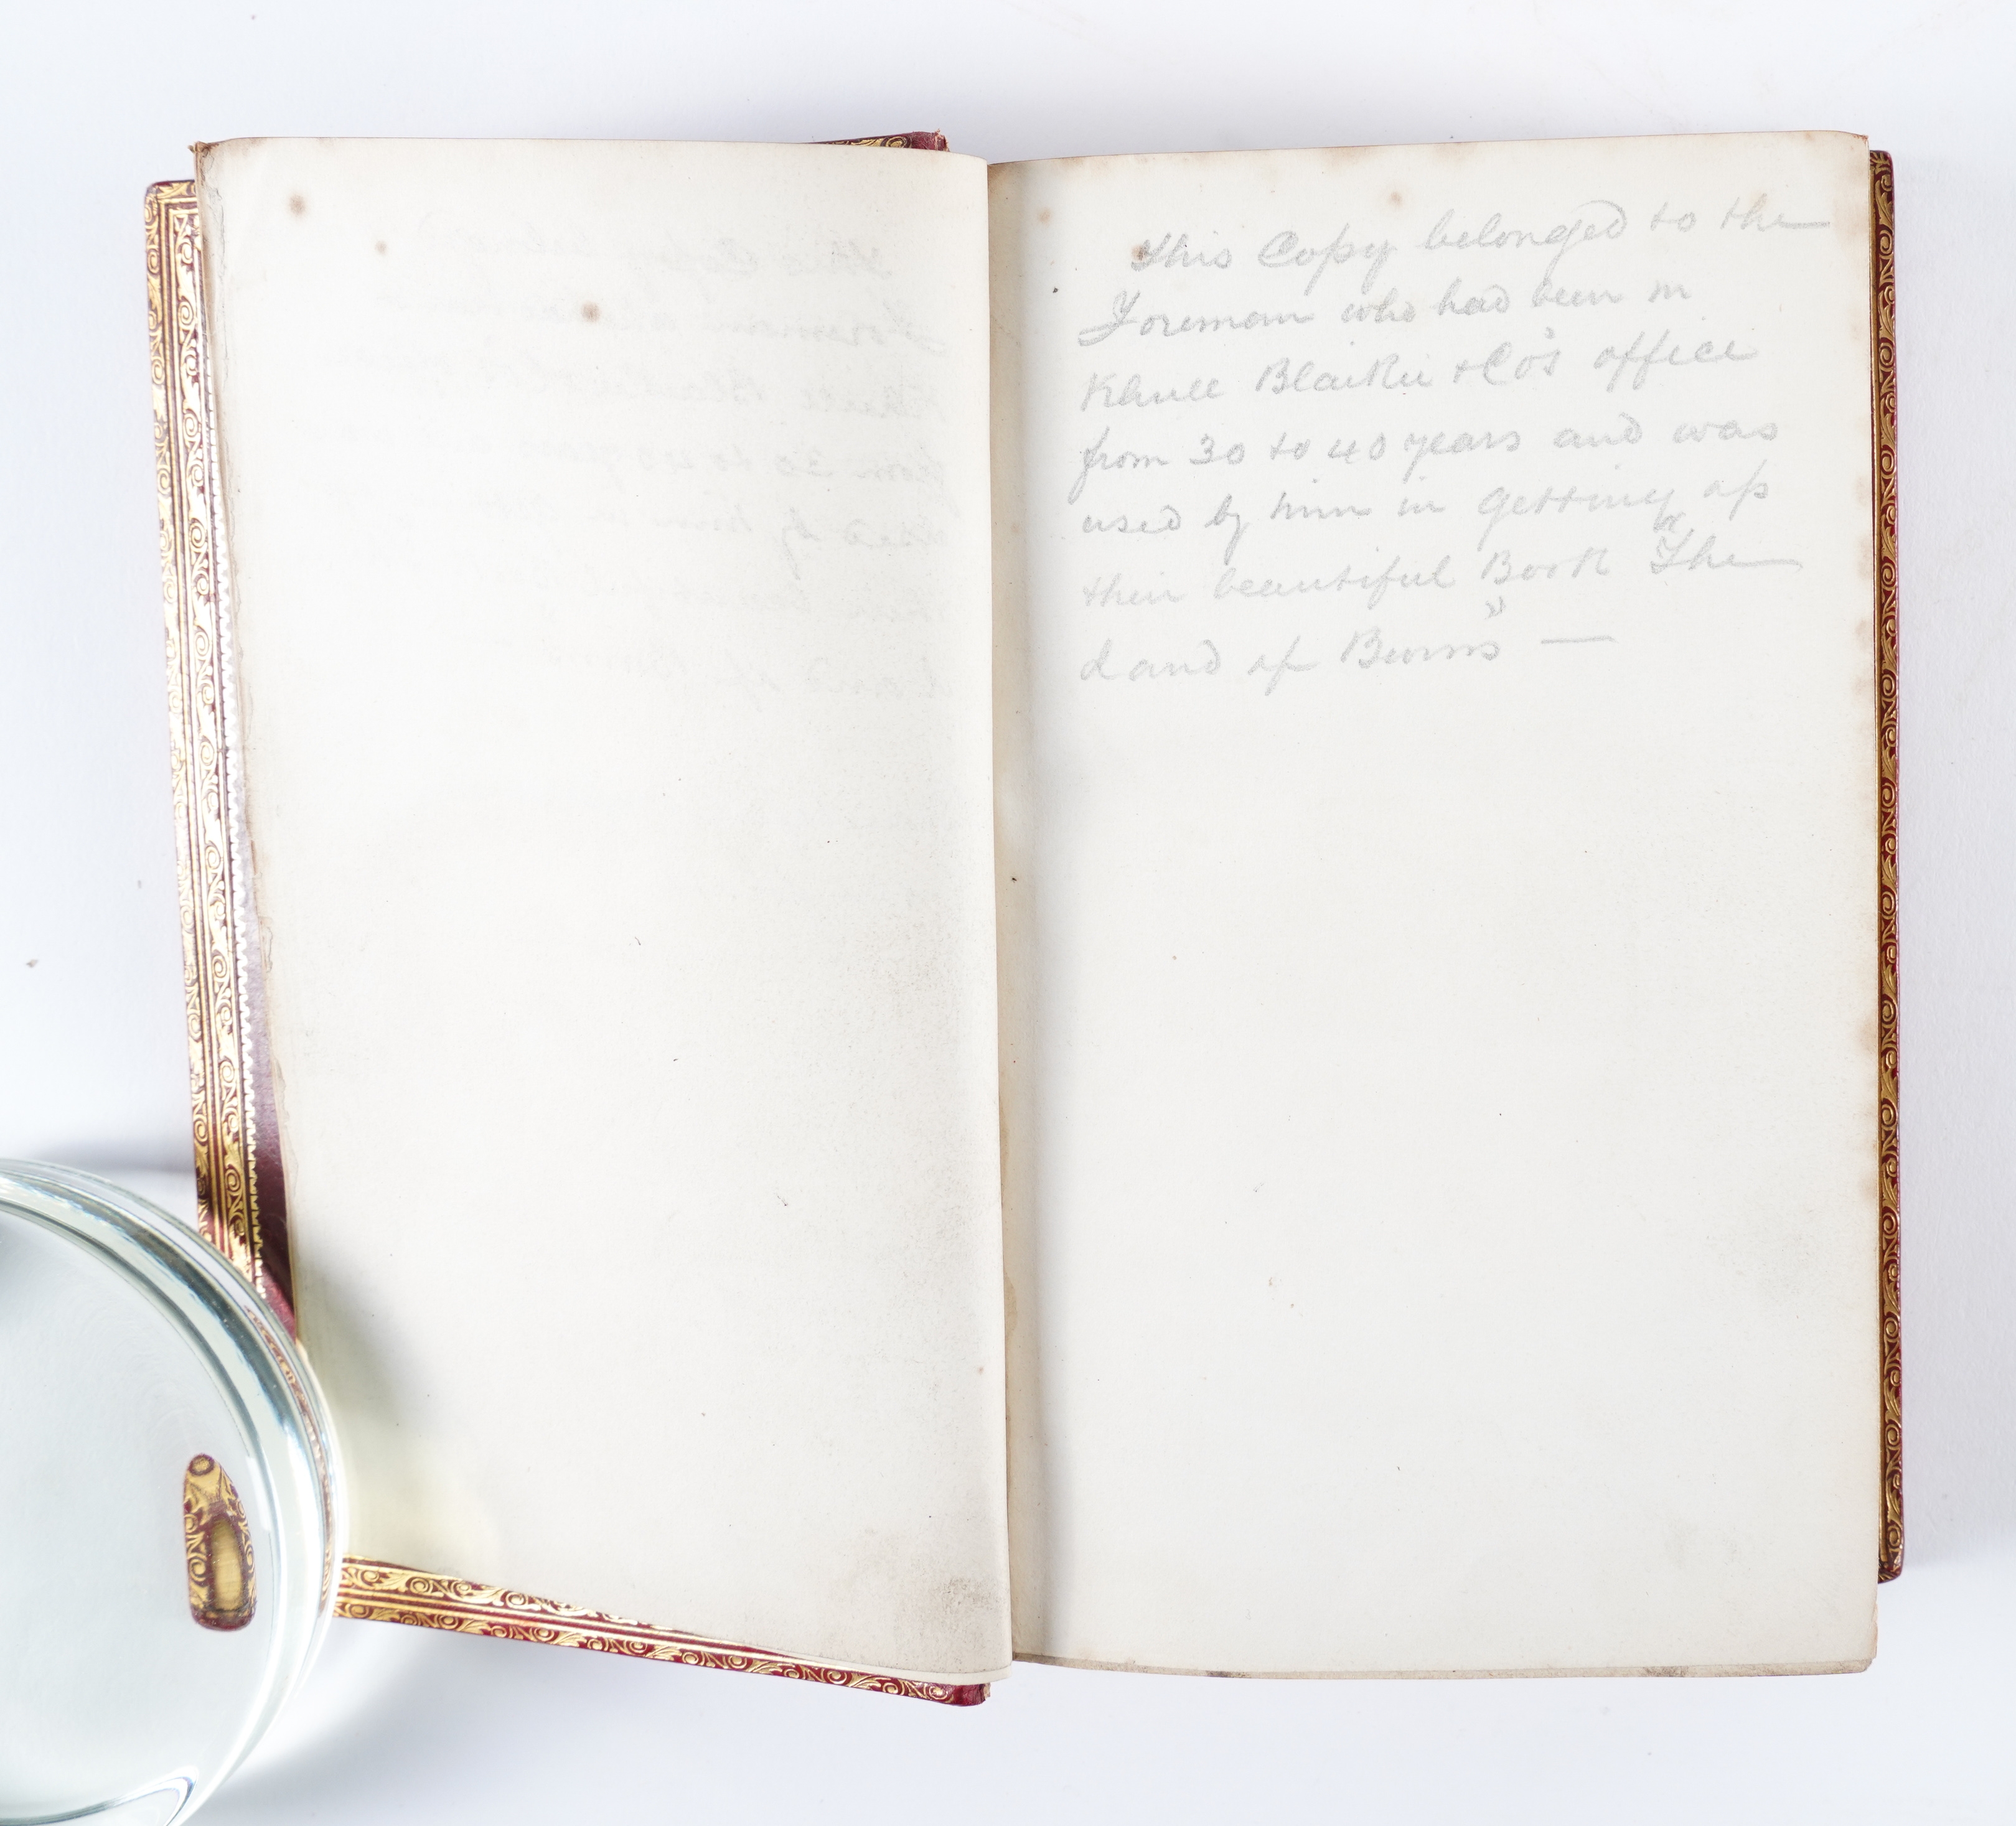 This Copy belonged to the
Foreman who had been in
Khull Blaikie & Co's office
from 30 to 40 years and was
used by him in getting up
their beautiful Book "The
Land of Burns" —